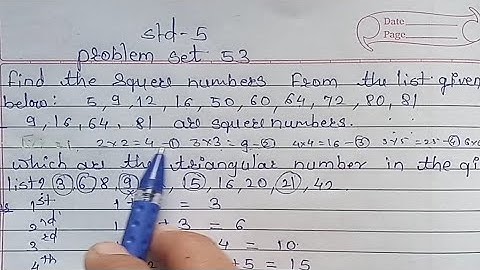 Date
Page
std-5
problem set 53
Find the square numbers From the list given
below: 5, 9, 12, 16, 50, 60, 64, 72, 80, 81
9, 16, 64, 81 are square numbers.
= 1, 2×2=4-① 3×3=9-② 4×4=16-③ 5×5=25-④ 6×
which are the triangular number in the gi
list? ③⑥ 8, ⑨ ⑮, 16, 20, ㉑, 42
1st 1 = 3
2rd 1 + 3 = 6
3rd 4 = 10
4th 2 +5 = 15